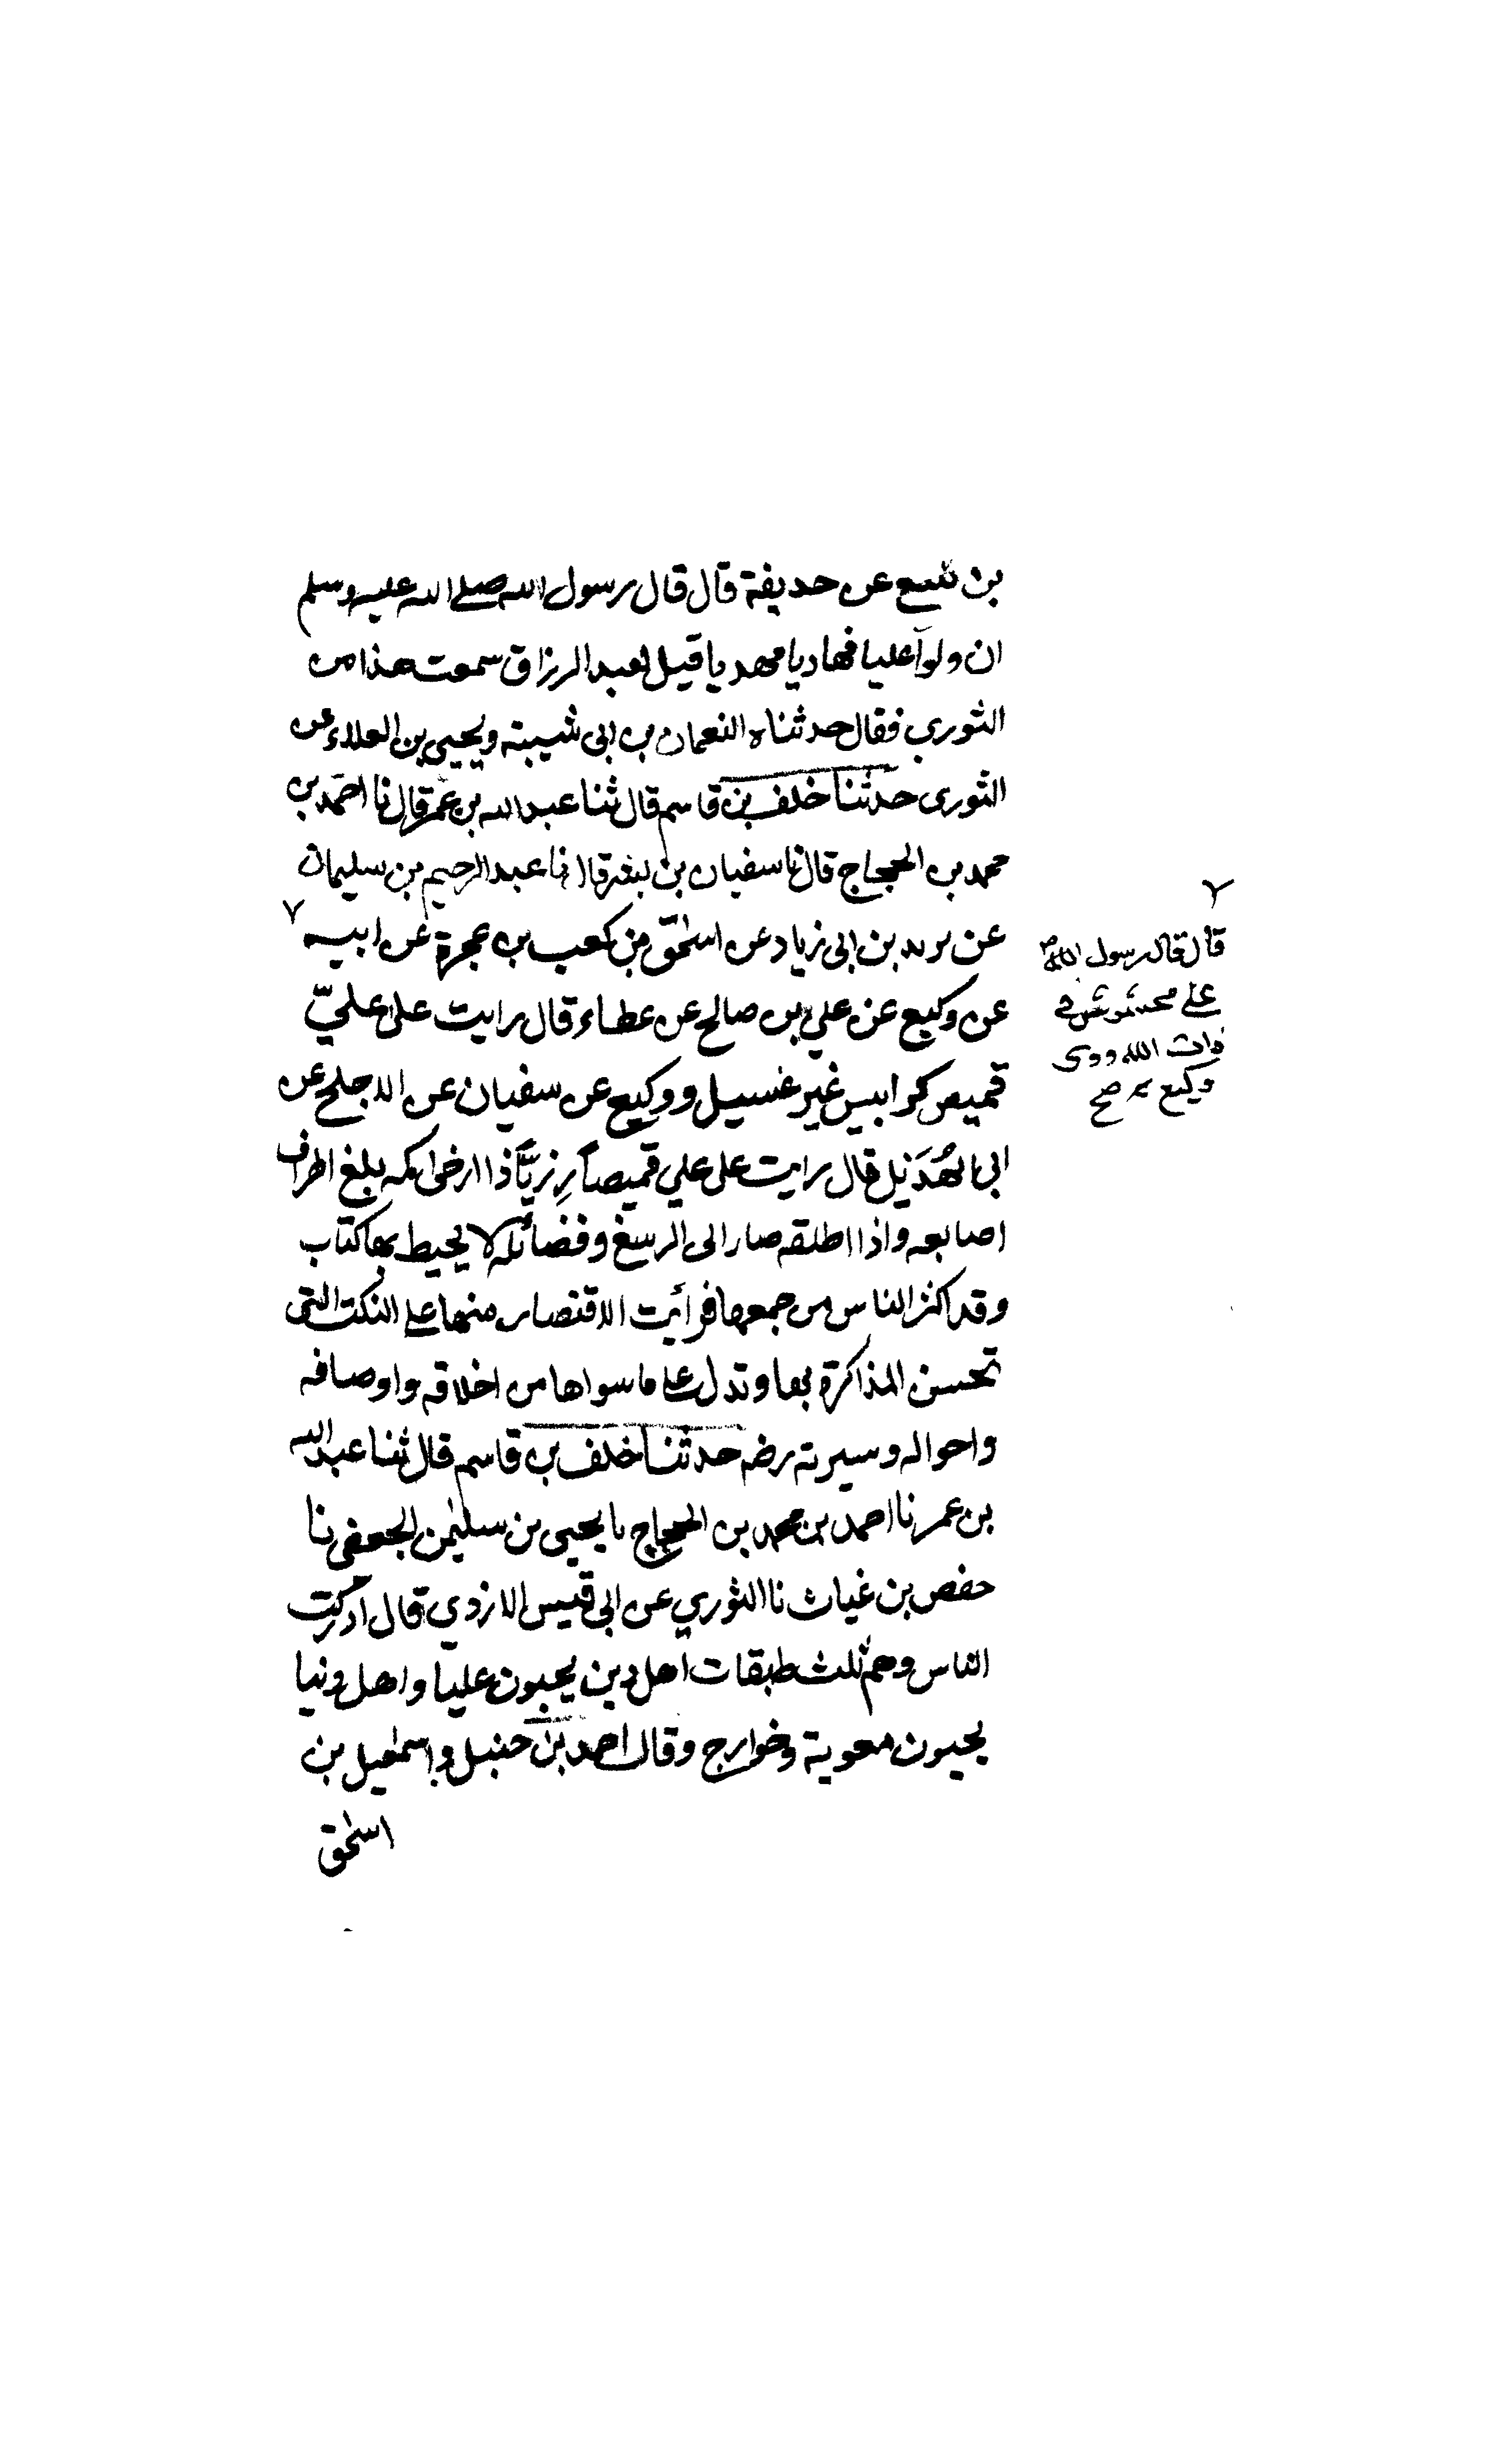 بن يثيع عن حذيفة قال قال رسول الله صلى الله عليه وسلم
ان ولوا عليا فهاديا مهديا قيل لعبد الرزاق سمعت هذا من
الثوري فقال حدثناه النعمان بن ابى شيبة ويحيى بن العلاء عن
الثورى حدثنا خلف بن قاسم قال ثنا عبد الله بن عمر قال نا احمد بن
محمد بن الحجاج قال نا سفيان بن بشر قال نا عبد الرحيم بن سليمان
عن يريد بن ابى زياد عن اسحق بن كعب بن عجرة عن ابيه ٧
عن وكيع عن علي بن صالح عن عطاء قال رايت على عليّ
قميص كرابيس غير غسيل ووكيع عن سفيان عن الاجلح عن
ابى الهُذَيل قال رايت على علي قميصا رازيّا اذا ارخى كمه بلغ اطراف
اصابعه واذا اطلقه صار الى الرسغ وفضائله لا يحيط بها كتاب
وقد اكثر الناس من جمعها فرأيت الاقتصار منها على النكت التى
تحسن المذاكرة بها وتدل على ما سواها من اخلاقه واوصافه
واحواله وسيرته رضه حدثنا خلف بن قاسم قال ثنا عبد الله
بن عمر نا احمد بن محمد بن الحجاج نا يحيى بن سليمن الجعفى نا
حفص بن غياث نا الثوري عن ابى قيس الازدي قال ادركت
الناس وهم ثلث طبقات اهل دين يحبون عليّا واهل دنيا
يحبون معوية وخوارج وقال احمد بن حنبل واسمعيل بن
اسحق
٧
قال قال رسول الله ص
على مخشوشن فى
ذات الله وروى
وكيع صح